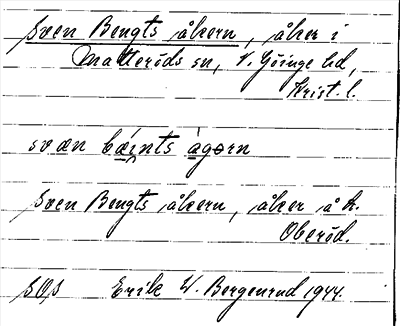 Sven Bengts åkern, åker i
Matteröds sn, V. Göinge hd,
Krist. l.
svæn bæints ågorn
Sven Bengts åkern, åker å k.
Oberöd.
SOS Erik W. Bergenrud 1944.